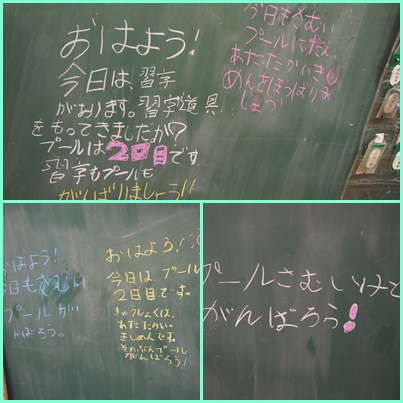 おはよう!
今日は、習字
があります。習字道具
をもってきましたか?
プールは2回目です
習字もプールも
がんばりましょう!!
今日もさむい
プールにだえ
あたたかいきし
めんをほっばりま
しょう
おはよう!
今日もさむい
プールが
んばろう。
おはよう!
今日は、プール
2日目です。
きゅうしょくは、
あたたかい
きしめんですね
そのぶんプール
がんばろう!
プールさむいけど
がんばろう!